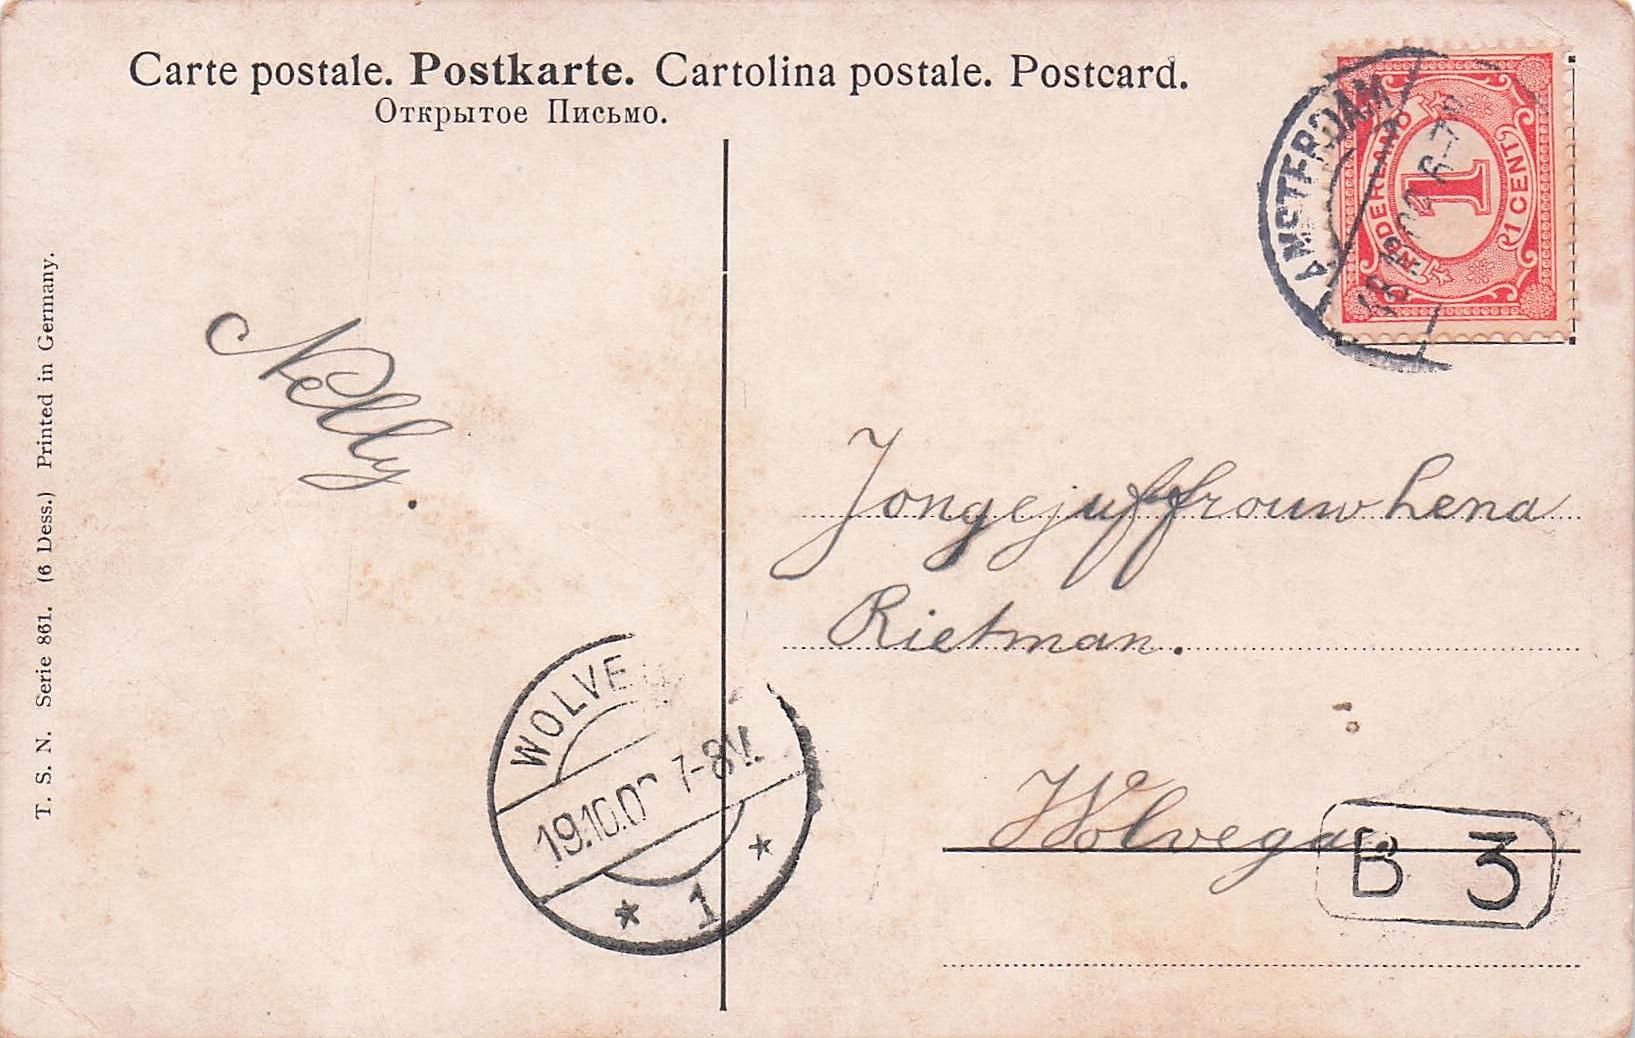 Carte postale. Postkarte. Cartolina postale. Postcard.
Открытое Письмо.
AMSTERDAM
6-7
NEDERLAND
1
1 CENT
T. S. N. Serie 861. (6 Dess.) Printed in Germany.
Nelly.
Jongejuffrouw Lena
Rietman.
Wolvega
B 3
WOLVE
19.10.0 7-8V.
* 1 *